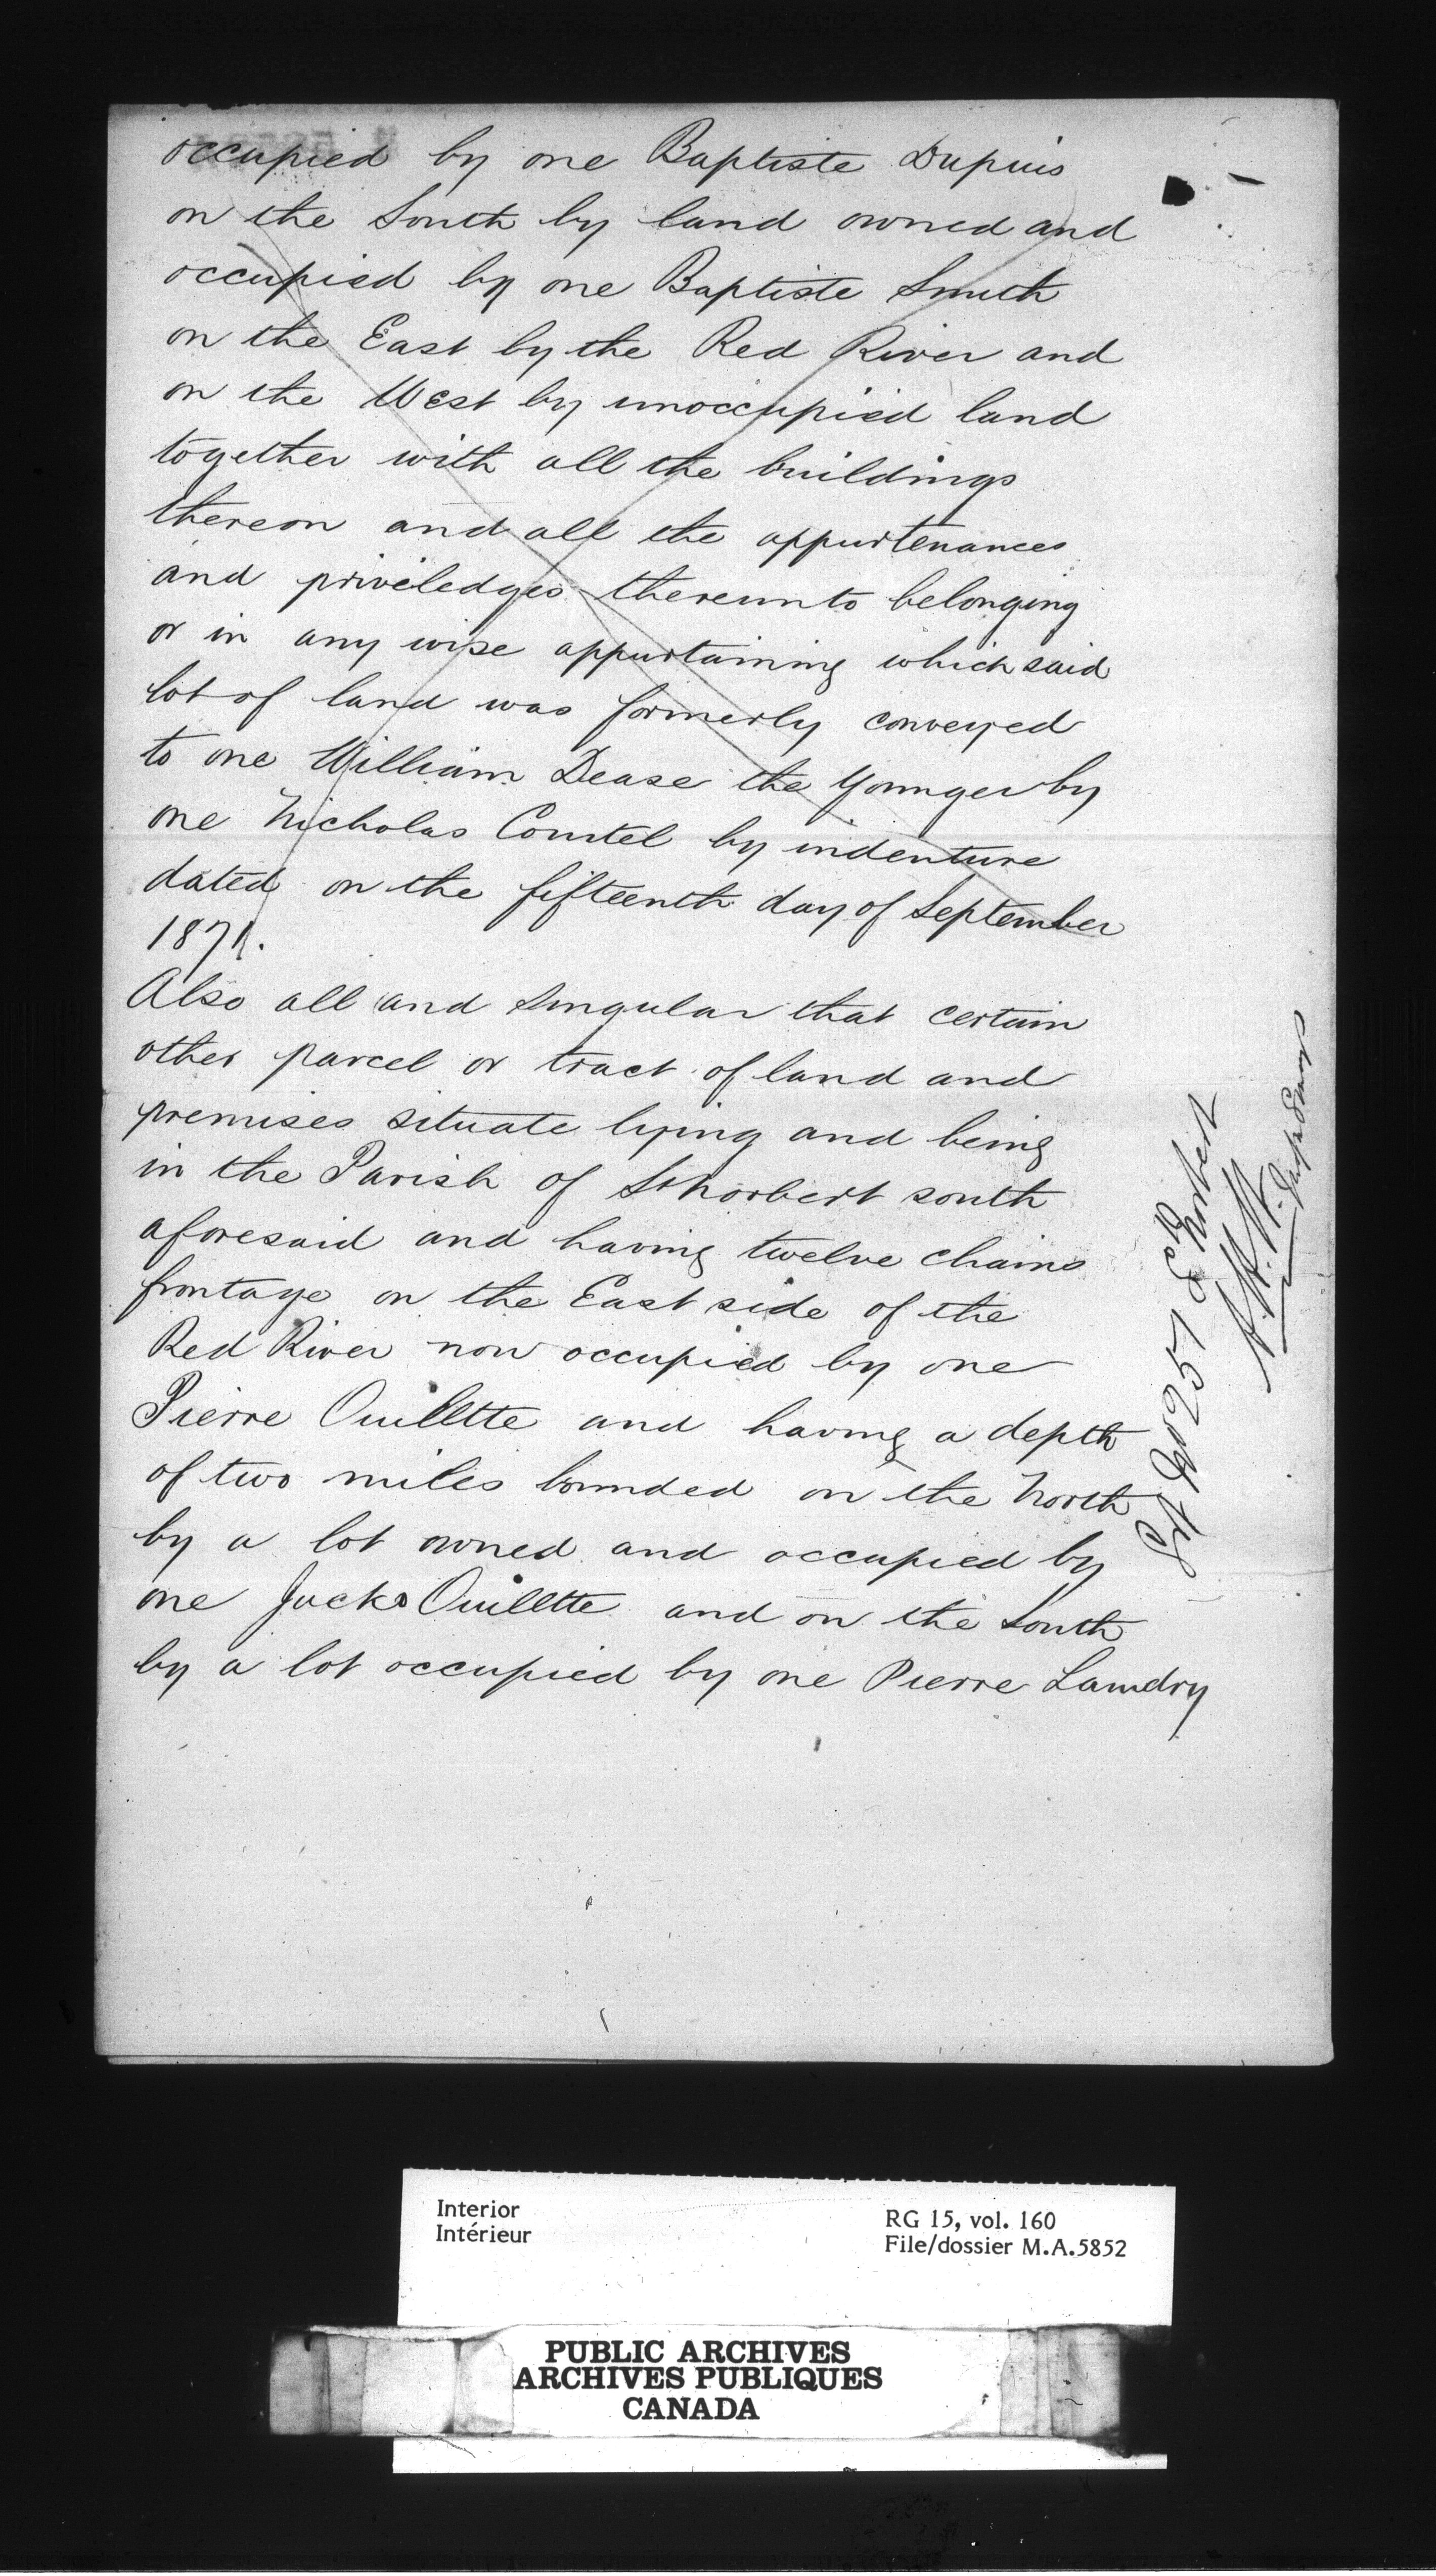 occupied by one Baptiste Dupuis
on the South by land owned and
occupied by one Baptiste Smith
on the East by the Red River and
on the West by unoccupied land
together with all the buildings
thereon and all the appurtenances
and priviledges thereunto belonging
or in any wise appurtaining which said
lot of land was formerly conveyed
to one William Dease the Younger by
one Nicholas Courtel by indenture
dated on the fifteenth day of September
1871.
Also all and Singular that certain
other parcel or tract of land and
premises situate lying and being
in the Parish of St Norbert south
aforesaid and having twelve chains
frontage on the East side of the
Red River now occupied by one
Pierre Ouilltte and having a depth
of two miles bounded on the North
by a lot owned and occupied by
one Jacks Ouilltte and on the South
by a lot occupied by one Pierre Laundry
Lot No 257 St Norbert
Interior
Intérieur
RG 15, vol. 160
File/dossier M.A.5852
PUBLIC ARCHIVES
ARCHIVES PUBLIQUES
CANADA